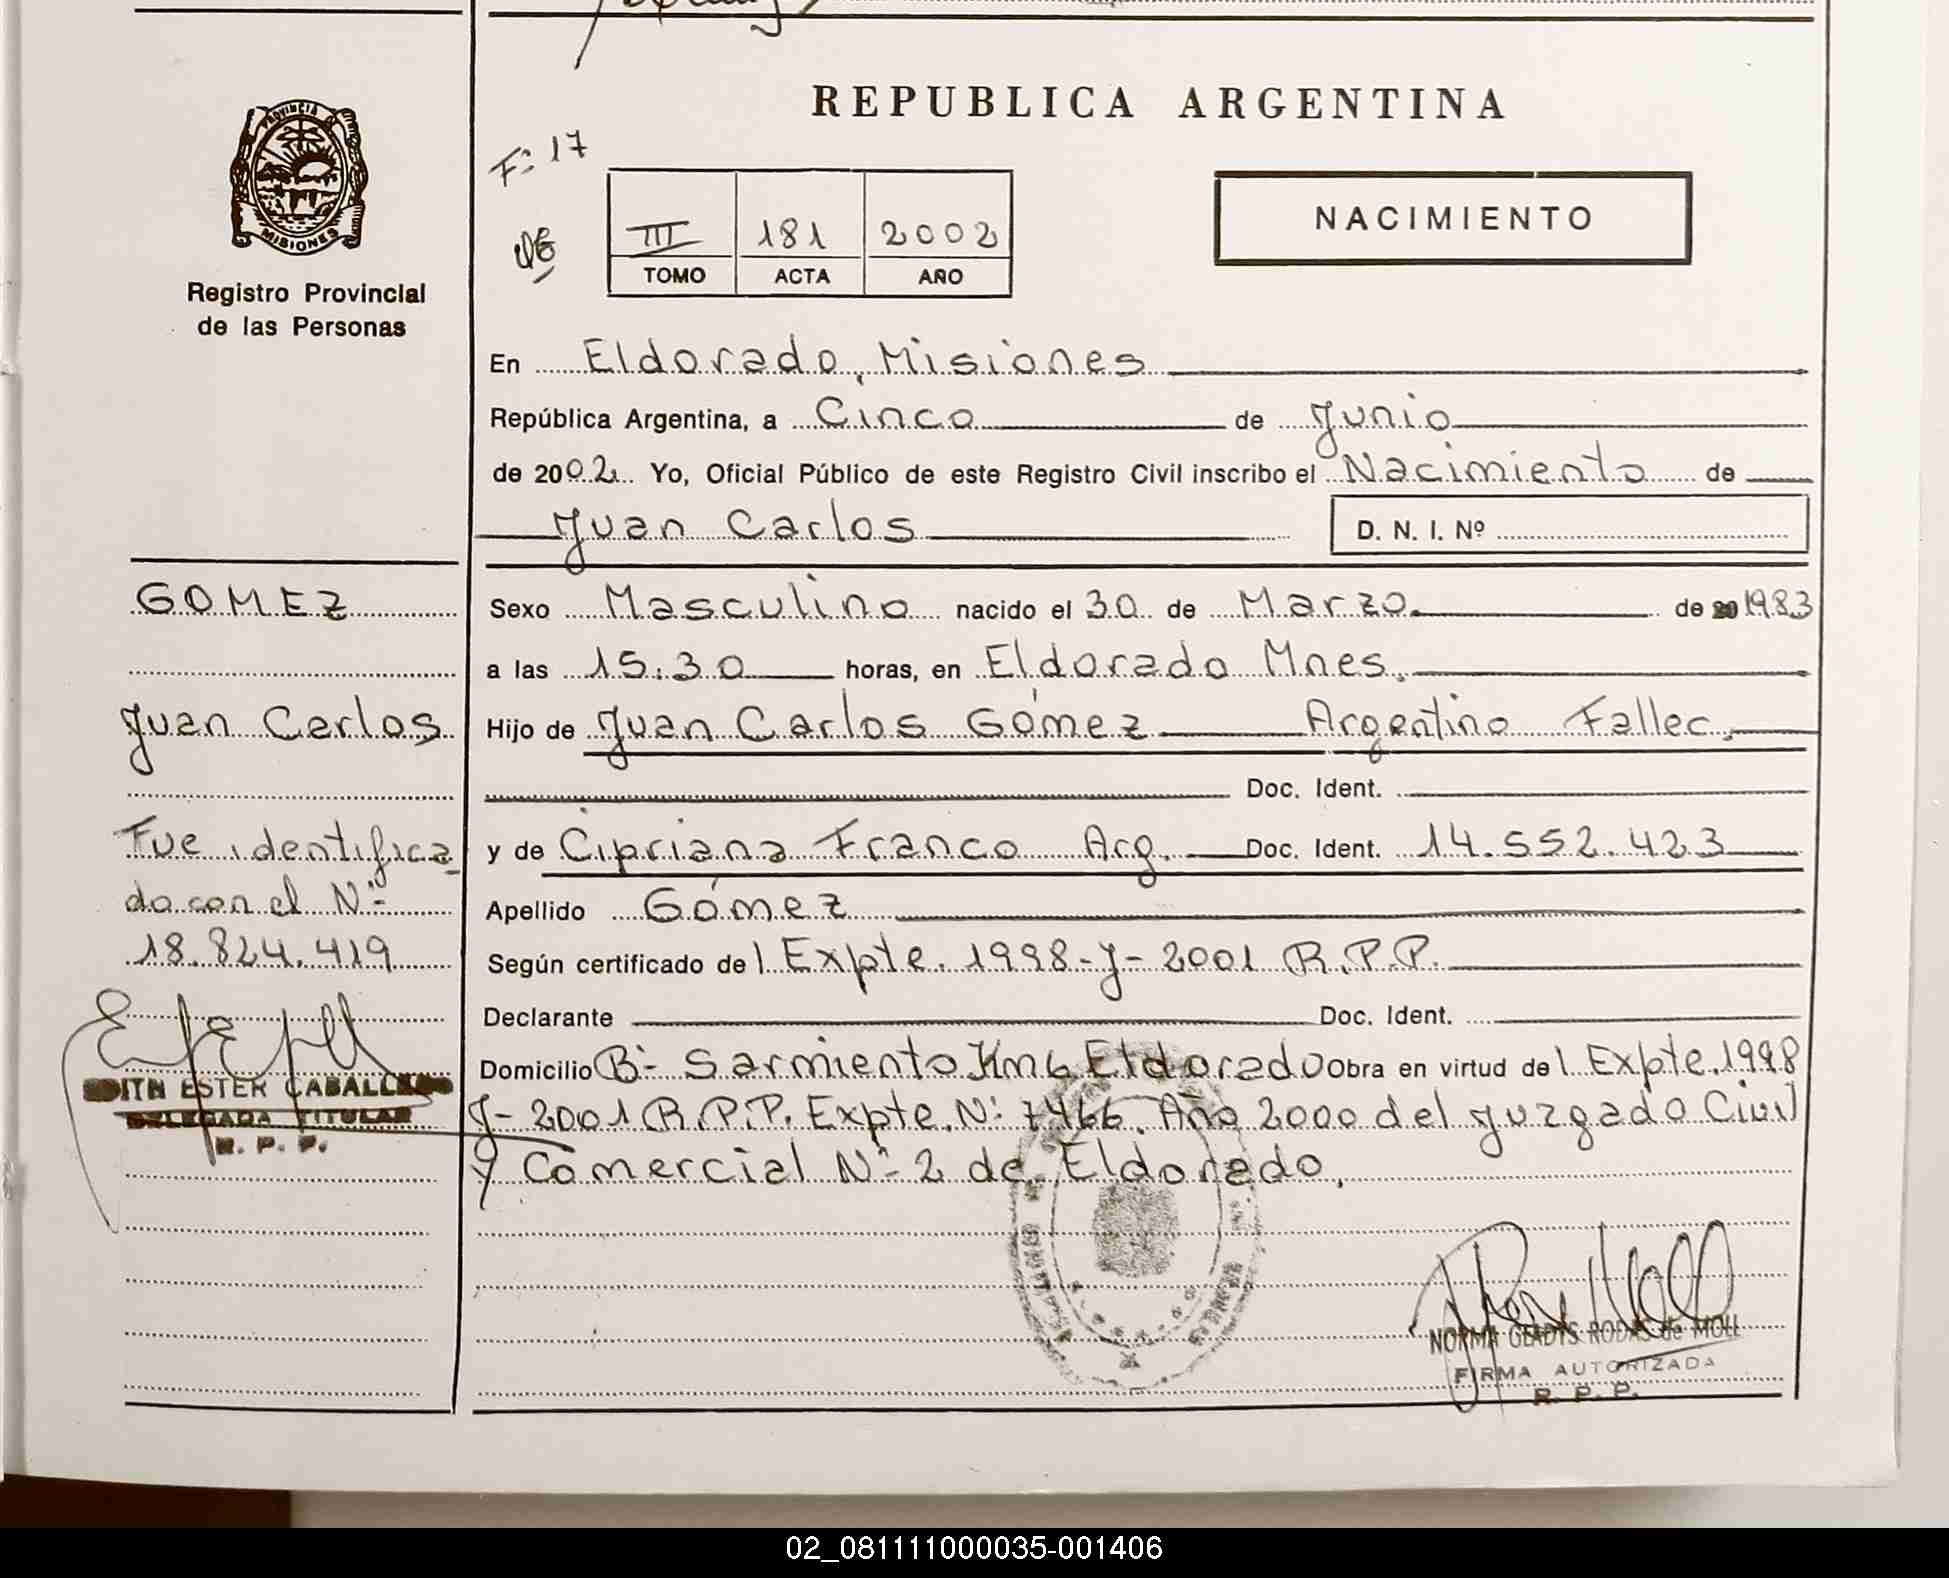 REPUBLICA ARGENTINA
PROVINCIA DE
MISIONES
Registro Provincial
de las Personas
Fº 17
III 181 2002
TOMO ACTA AÑO
NACIMIENTO
En Eldorado, Misiones
República Argentina, a Cinco de Junio
de 2002 Yo, Oficial Público de este Registro Civil inscribo el Nacimiento de
Juan Carlos D. N. I. Nº
GOMEZ
Juan Carlos
Fue identifica
do con el Nº
18.824.419
EDITH ESTER CABALLERO
DELEGADA TITULAR
R. P. P.
Sexo Masculino nacido el 30 de Marzo de 20 1983
a las 15:30 horas, en Eldorado Mnes.
Hijo de Juan Carlos Gómez Argentino Fallec.
Doc. Ident.
y de Cipriana Franco Arg. Doc. Ident. 14.552.423
Apellido Gómez
Según certificado del Expte. 1998-J-2001 R.P.P.
Declarante Doc. Ident.
Domicilio Bº Sarmiento Km 6 Eldorado Obra en virtud del Expte. 1998
J-2001 R.P.P. Expte. Nº 7466. Año 2000 del Juzgado Civil
y Comercial Nº 2 de Eldorado.
NORMA GLADYS RODAS de MOLL
FIRMA AUTORIZADA
R. P. P.
02_081111000035-001406